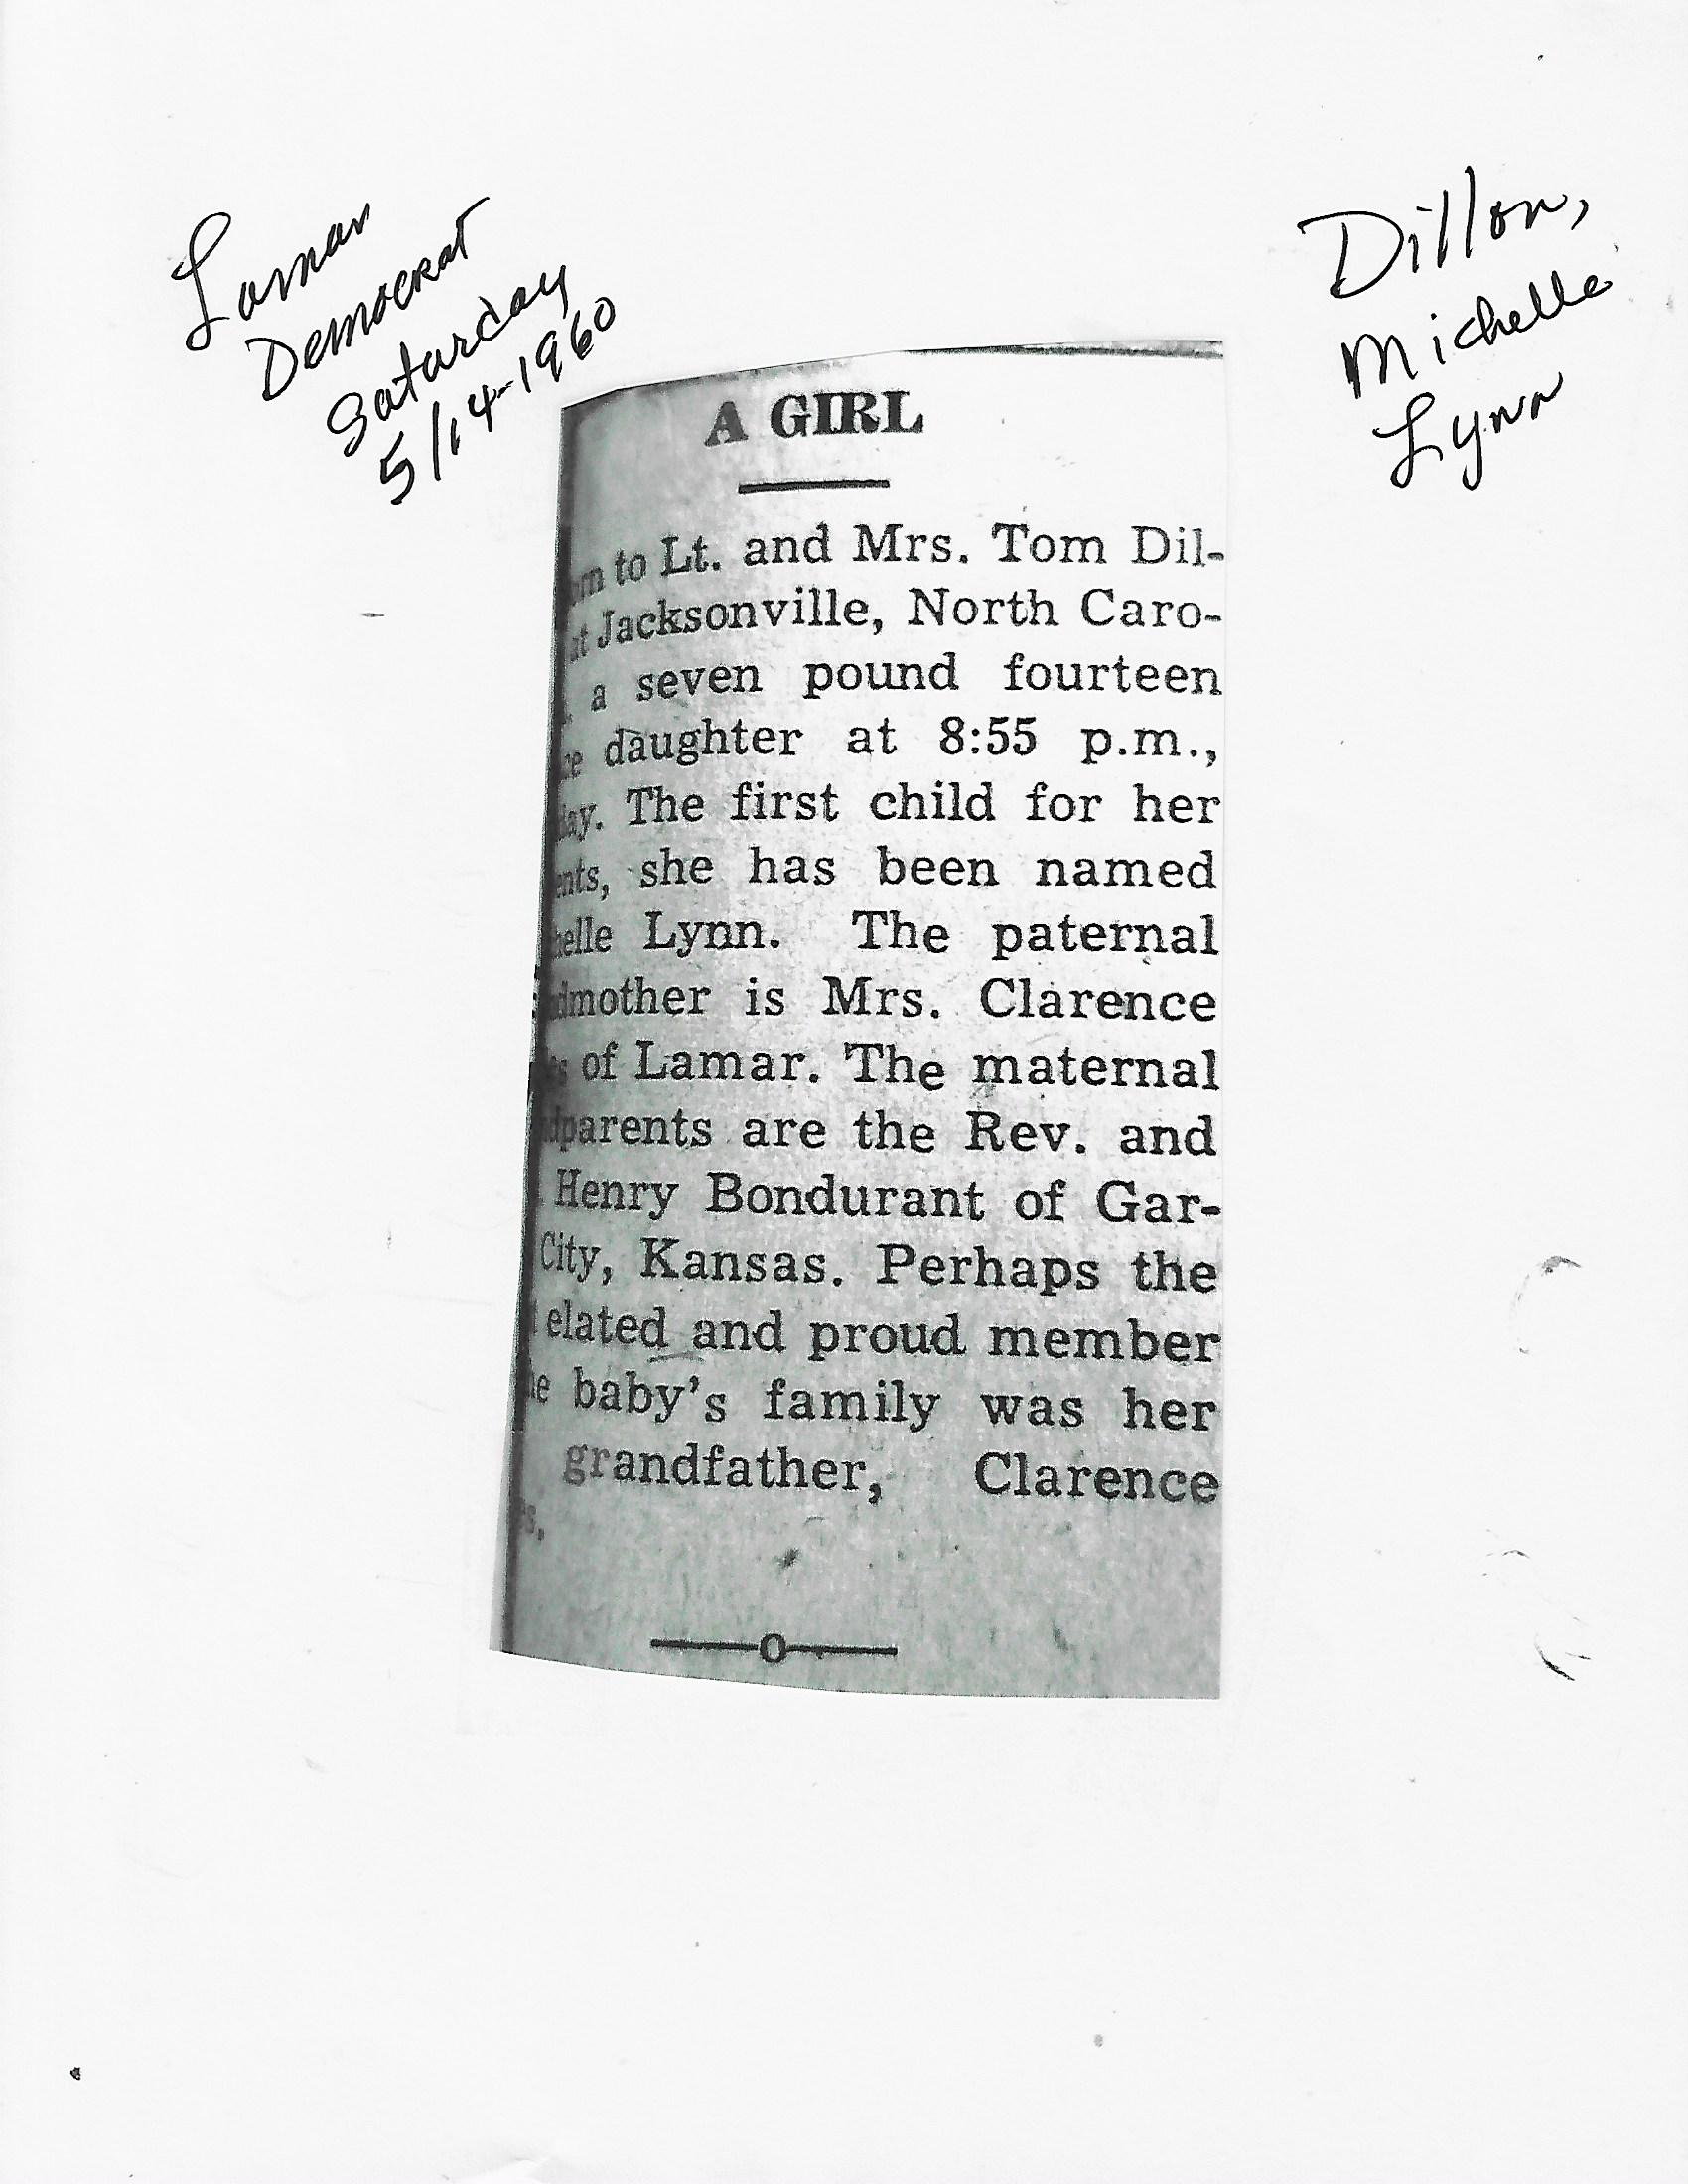 Lamar
Democrat
Saturday
5/14-1960
Dillon,
Michelle
Lynn
A GIRL
to Lt. and Mrs. Tom Dil-
at Jacksonville, North Caro-
a seven pound fourteen
daughter at 8:55 p.m.,
ay. The first child for her
ents, she has been named
elle Lynn. The paternal
dmother is Mrs. Clarence
of Lamar. The maternal
dparents are the Rev. and
Henry Bondurant of Gar-
City, Kansas. Perhaps the
elated and proud member
he baby's family was her
grandfather, Clarence
s.
o